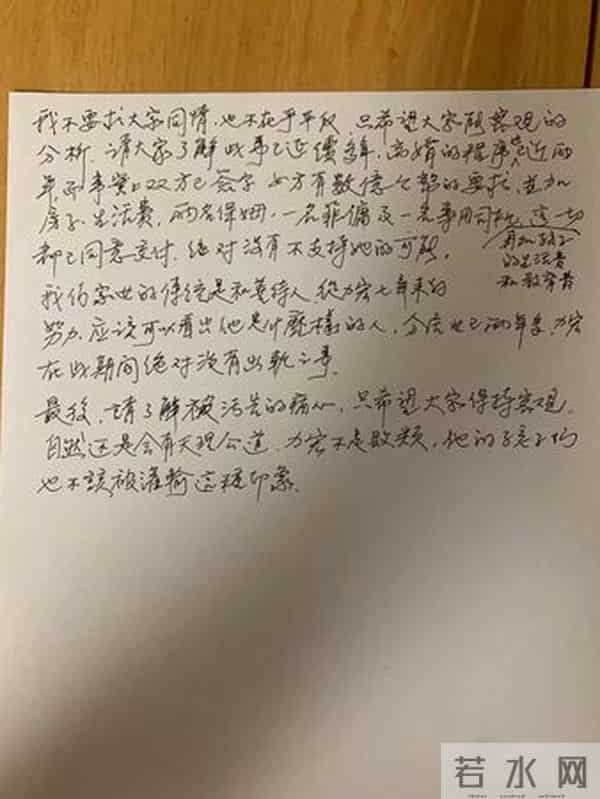 我不要求大家同情,也不在乎平反,只希望大家能客观的
分析.请大家了解此事已延续多年,离婚的程序也已近两
年,而事实上双方已签字 女方有数億金额的要求,並加
房子.生活费,两名保姆,一名菲傭及一名專用司机,这一切
都已同意支付.绝对没有不支持她的可能.
再加孩子
的生活费
和教育费
我们家世的传统是和善待人 從力宏七年来的
努力,应该可以看出他是什麼樣的人,分居也已两年多,力宏
在此期间绝对没有出軌之事.
最後,請了解被污告的痛心,只希望大家保持客观.
自然还是会有天理公道.力宏不是败類,他的孩子们
也不該被灌輸这種印象.
若水网